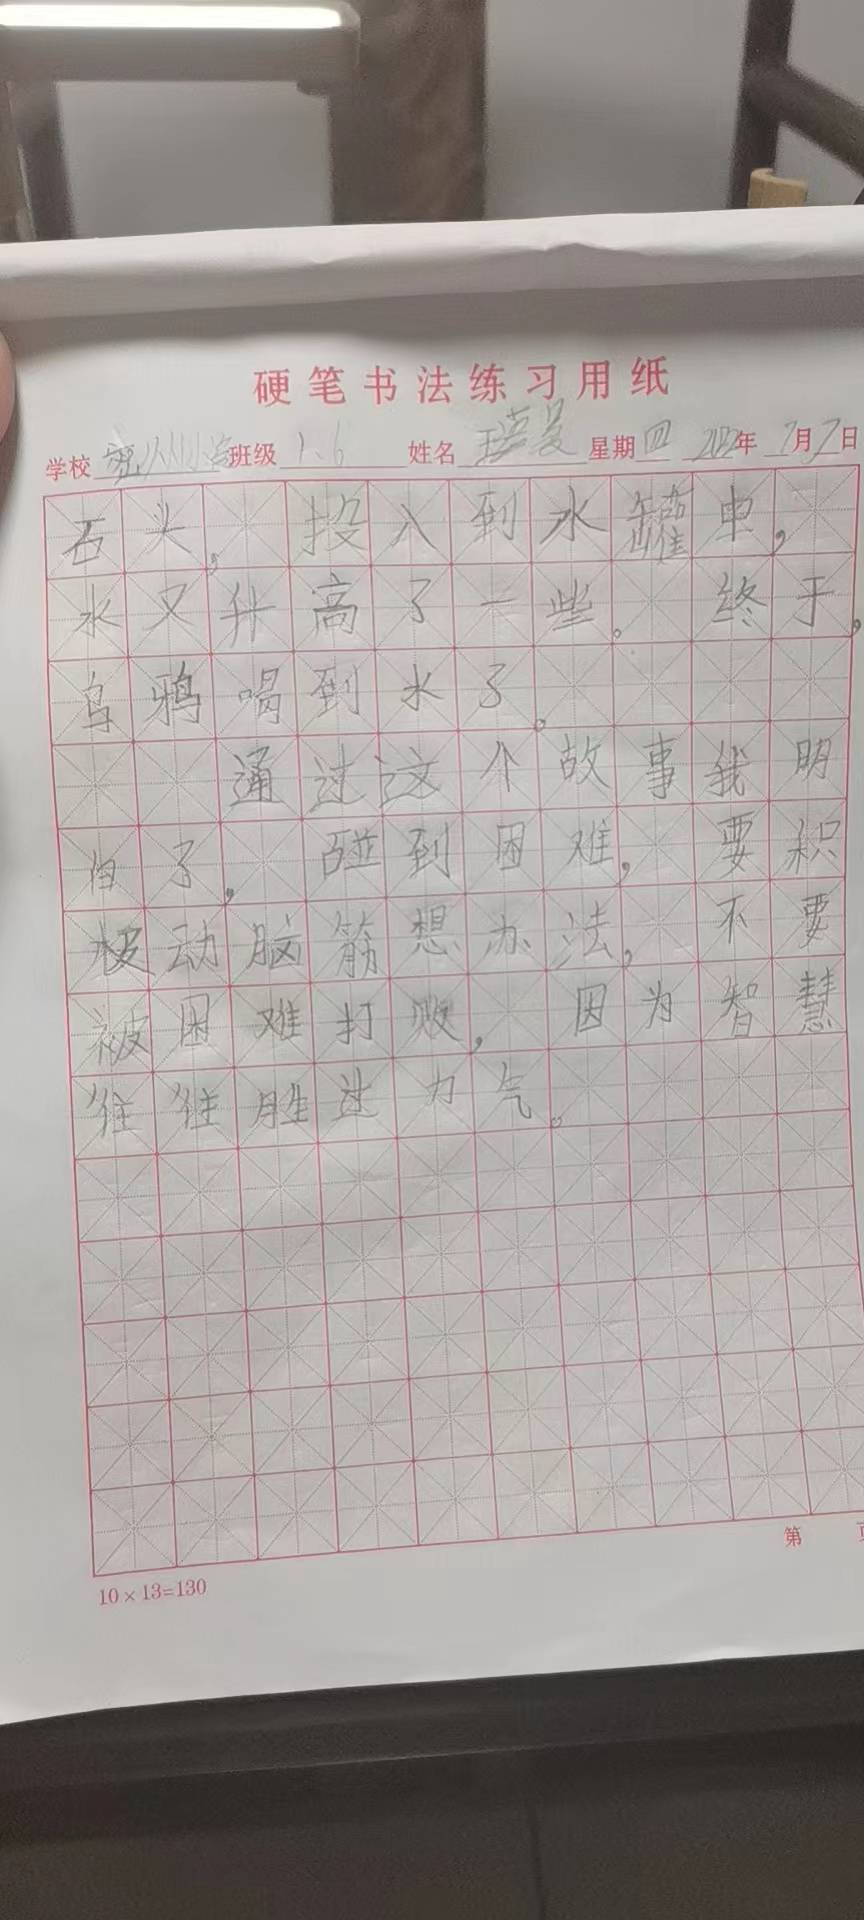 硬笔书法练习用纸
学校 密州小学 班级 1、6 姓名 王 星期 四 年 7月7日
石头，投入到水罐中，
水又升高了一些。终于，
乌鸦喝到水了。
通过这个故事我明
白了，碰到困难，要积
极动脑筋想办法，不要
被困难打败，因为智慧
往往胜过力气。
第 页
10×13=130